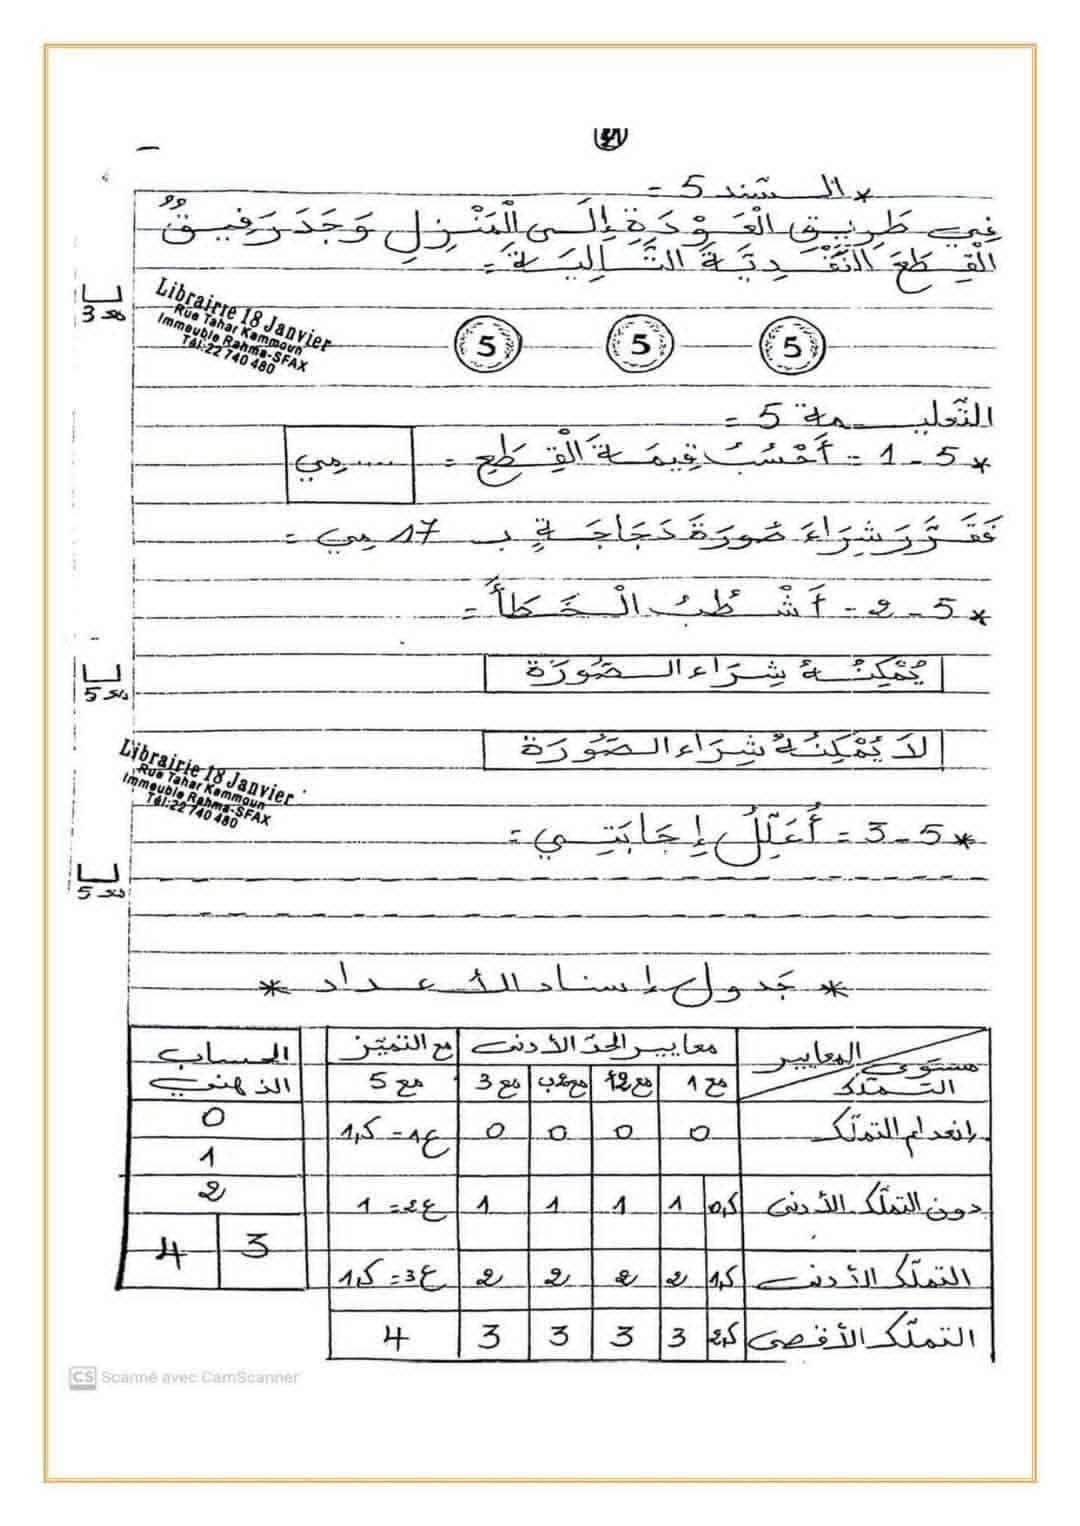 * السّند 5 =
فِي طَرِيقِ الْعَوْدَةِ إِلَى الْمَنْزِلِ وَجَدَ رَفِيقٌ
الْقِطَعَ النَّقْدِيَّةَ التَّالِيَةَ =
مع 3
Librairie 18 Janvier
Rue Tahar Kammoun
Immeuble Rahma-SFAX
Tél:22 740 480
5 5 5
التّعليمة 5 =
* 5 - 1 = أَحْسُبُ قِيمَةَ الْقِطَعِ = .... مِي
فَقَرَّرَ شِرَاءَ صُورَةَ دَجَاجَةٍ بِـ 17 مِي =
* 5 - 2 - أَشْطُبُ الْخَطَأَ =
يُمْكِنُهُ شِرَاء الصُّورَة
مع 5
لَا يُمْكِنُهُ شِرَاء الصُّورَة
Librairie 18 Janvier
Rue Tahar Kammoun
Immeuble Rahma-SFAX
Tél:22 740 480
* 5 - 3 = أُعَلِّلُ إِجَابَتِي =
مع 5
* جَدول إسناد الأعداد *
المعايير
مستوى التملّك
معايير الحدّ الأدنى
مع التميّز
الحساب الذهني
مع 1 مع 2أ مع 2ب مع 3 مع 5
إنعدام التملّك 0 0 0 0 ع1 = 1,5
دون التملّك الأدنى 0,5 1 1 1 1 ع2 = 1
التملّك الأدنى 1,5 2 2 2 2 ع3 = 1,5
التملّك الأقصى 2,5 3 3 3 3 4
0
1
2
3 4
CS Scanné avec CamScanner